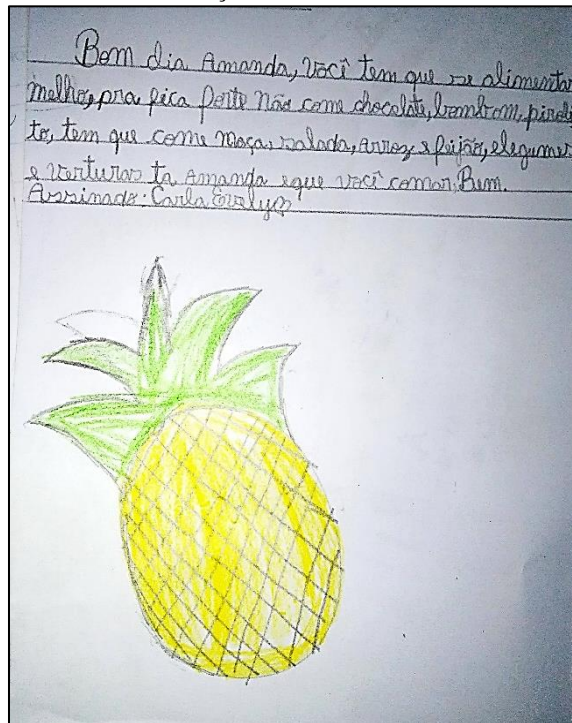 Bom dia Amanda, você tem que se alimentar
melhor, pra fica forte não come chocolate, bombom, piroli
to, tem que come maça, salada, arroz e feijão, elegumes
e verturas ta Amanda eque você comar Bem.
Assinado: Carla Evelyn